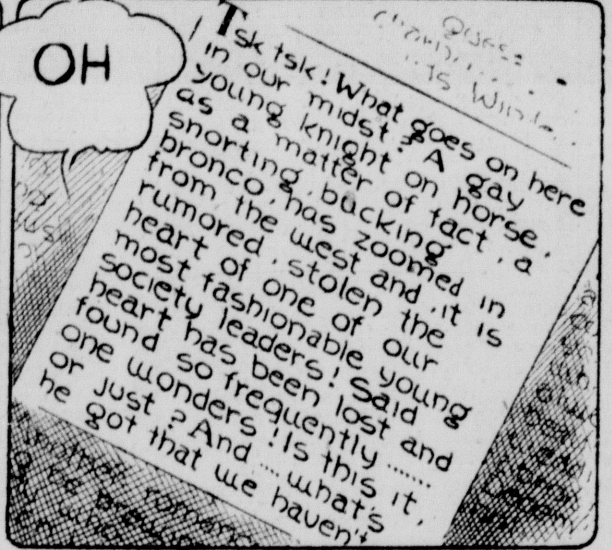 OH
Tsk tsk! What goes on here
in our midst? A gay
young knight on horse.
as a matter of fact, a
snorting, bucking
bronco, has zoomed in
from the west and, it is
rumored, stolen the
heart of one of our
most fashionable young
society leaders! Said
heart has been lost and
found so frequently .......
one wonders! Is this it,
or just? And .... what's
he got that we haven't
another romance